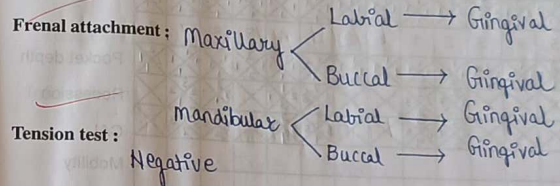 Frenal attachment : Maxillary < Labial → Gingival
Buccal → Gingival
Mandibular < Labial → Gingival
Buccal → Gingival
Tension test :
Negative